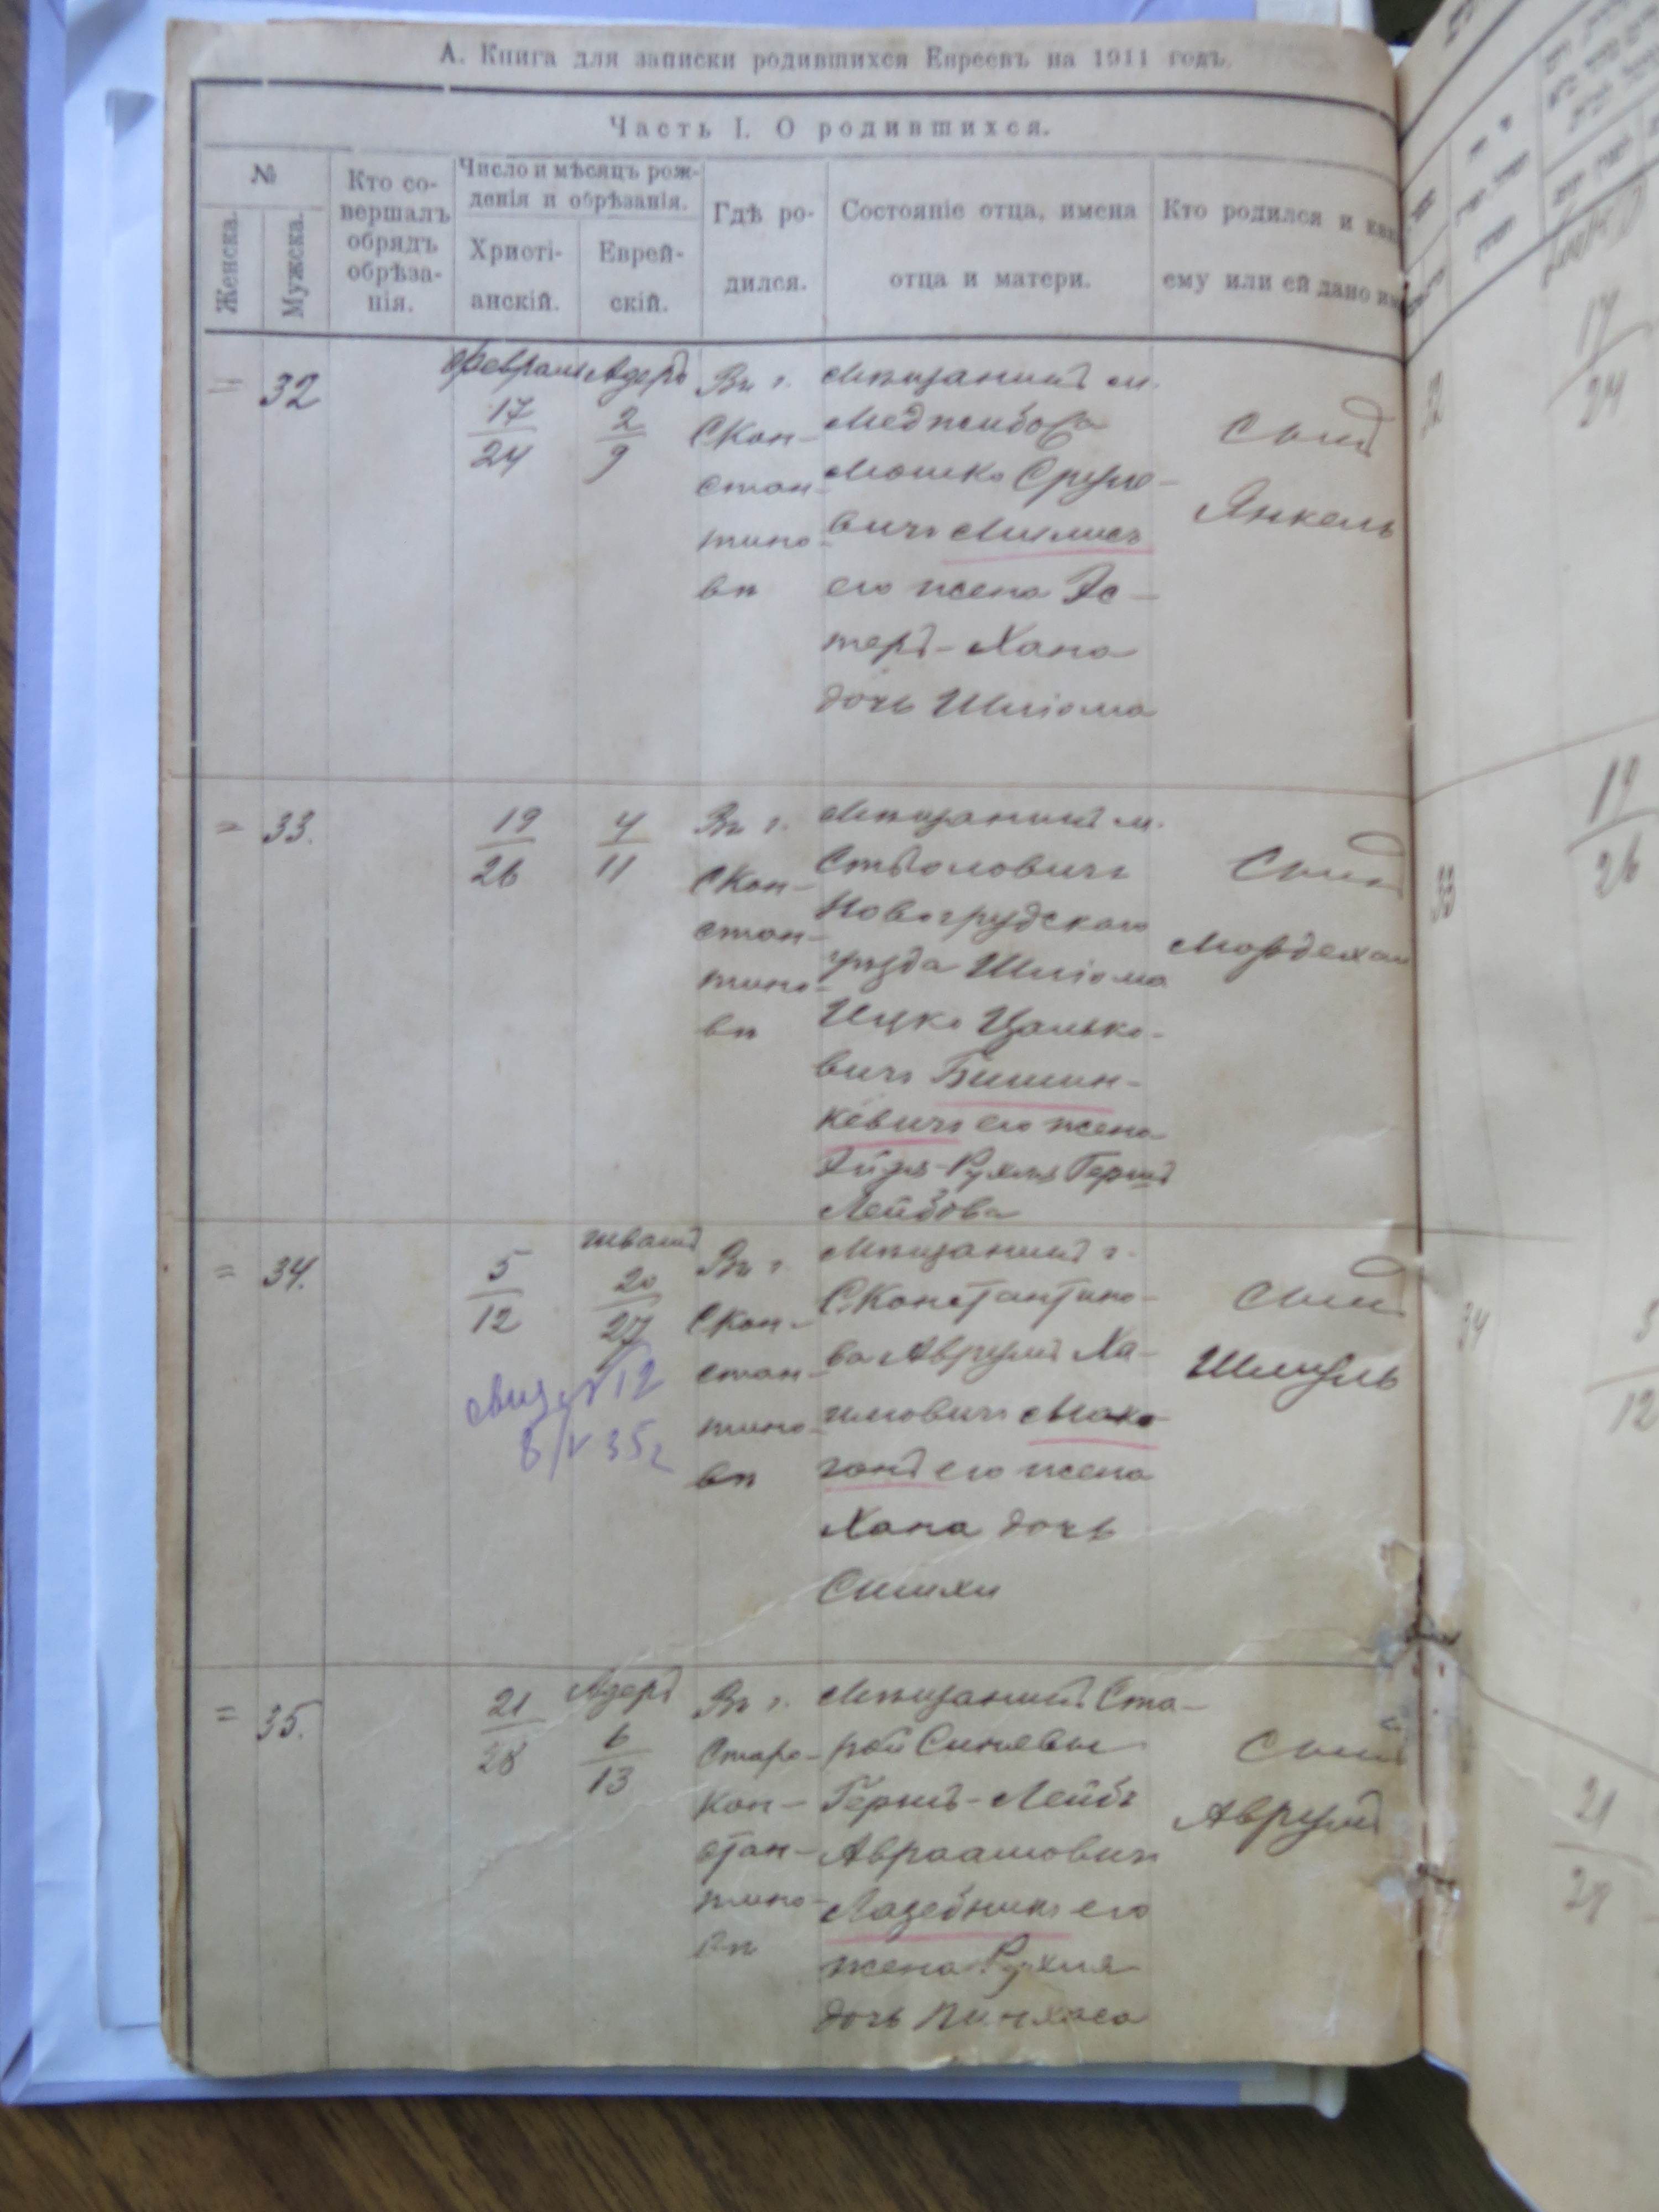 А. Книга для записки родившихся Евреевъ на 1911 годъ.
Часть I. О родившихся.
№
Женска.
Мужска.
Кто со-
вершалъ
обрядъ
обрѣза-
нія.
Число и мѣсяцъ рож-
денія и обрѣзанія.
Христі-
анскій.
Еврей-
скій.
Гдѣ ро-
дился.
Состояніе отца, имена
отца и матери.
Кто родился и как
ему или ей дано им
= 32
Февраль
17
24
Адеръ
2
9
Въ г.
СКон-
стан-
тино-
вѣ
Мѣщанинъ м.
Меджибожа
Мошко Сруле-
вичъ
его жена Эс-
теръ-Хана
дочь Шлiома
Сынъ
Янкель
= 33.
19
26
4
11
Въ г.
СКон-
стан-
тино-
вѣ
Мѣщанинъ м.
Столовичъ
Новогрудскаго
уѣзда Шлiома
Ицко Цалько-
вичъ
кевичъ его жена
Рухля Герш
Лейбова
Сынъ
Мордехай
= 34.
5
12
шватъ
20
27
12
35 г
Въ г.
СКон-
стан-
тино-
вѣ
Мѣщанинъ г.
С.Константино-
ва Аврумъ Ха-
имовичъ Мако-
гонъ его жена
Хана дочь
Симхи
Сынъ
Шмуль
= 35.
21
28
Адеръ
6
13
Въ г.
Старо-
Кон-
стан-
тино-
вѣ
Мѣщанинъ Ста-
рой Синявы
Гершъ-Лейбъ
Авраамовичъ
Лазебникъ его
жена Рухля
дочь Пинхаса
Сынъ
Аврумъ
33
34
17
24
19
26
5
12
21
28